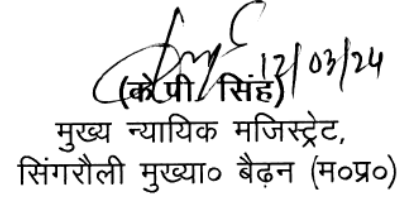 12/03/24
(के.पी. सिंह)
मुख्य न्यायिक मजिस्ट्रेट,
सिंगरौली मुख्या० बैढ़न (म०प्र०)